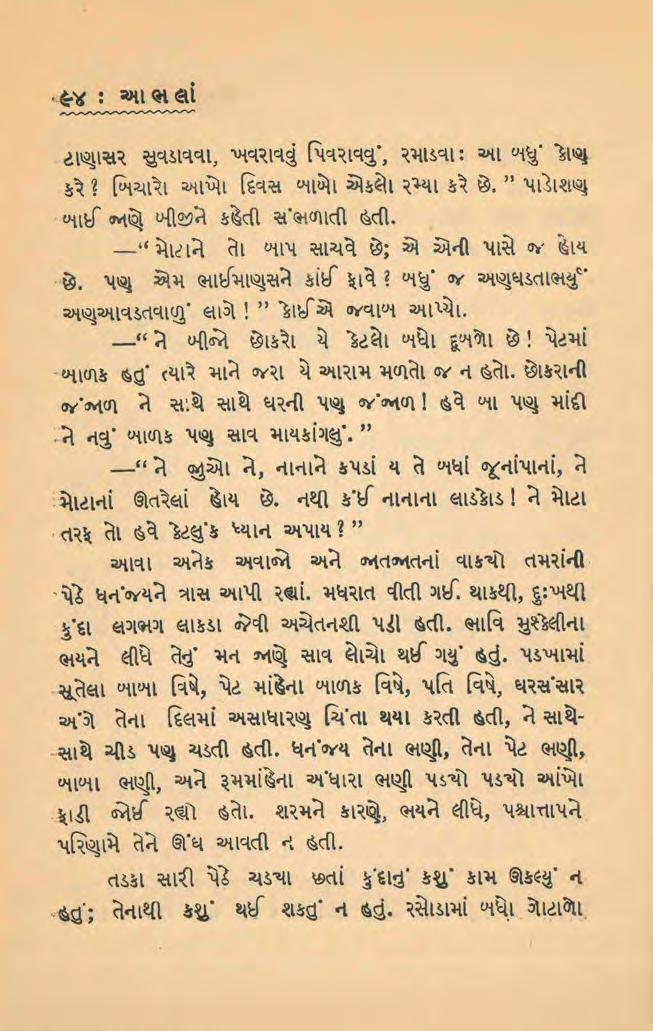 ૯૪ : આભલાં
ટાણાસર સુવડાવવા, ખવરાવવું પિવરાવવું, રમાડવા: આ બધું કોણ
કરે? બિચારો આખો દિવસ બાબો એકલો રમ્યા કરે છે.” પાડોશણ
બાઈ જાણે બીજીને કહેતી સંભળાતી હતી.
—“મોટાને તો બાપ સાચવે છે; એ એની પાસે જ હોય
છે. પણ એમ ભાઈમાણસને કાંઈ ફાવે? બધું જ અણઘડતાભર્યું
અણઆવડતવાળું લાગે!” કોઈએ જવાબ આપ્યો.
—“ને બીજો છોકરો યે કેટલો બધો દૂબળો છે! પેટમાં
બાળક હતું ત્યારે માને જરા યે આરામ મળતો જ ન હતો. છોકરાની
જંજાળ ને સાથે સાથે ઘરની પણ જંજાળ! હવે બા પણ માંદી
ને નવું બાળક પણ સાવ માયકાંગલું.”
—“ને જુઓ ને, નાનાને કપડાં ય તે બધાં જૂનાંપાનાં, ને
મોટાનાં ઊતરેલાં હોય છે. નથી કંઈ નાનાના લાડકોડ! ને મોટા
તરફ તો હવે કેટલુંક ધ્યાન અપાય?”
આવા અનેક અવાજો અને જાતજાતનાં વાકયો તમરાંની
પેઠે ધનંજયને ત્રાસ આપી રહ્યાં. મધરાત વીતી ગઈ. થાકથી, દુઃખથી
કુંદા લગભગ લાકડા જેવી અચેતનશી પડી હતી. ભાવિ મુશ્કેલીના
ભયને લીધે તેનું મન જાણે સાવ લોચો થઈ ગયું હતું. પડખામાં
સૂતેલા બાબા વિષે, પેટ માંહેના બાળક વિષે, પતિ વિષે, ઘરસંસાર
અંગે તેના દિલમાં અસાધારણ ચિંતા થયા કરતી હતી, ને સાથે-
સાથે ચીડ પણ ચડતી હતી. ધનંજય તેના ભણી, તેના પેટ ભણી,
બાબા ભણી, અને રૂમમાંહેના અંધારા ભણી પડયો પડયો આંખો
ફાડી જોઈ રહ્યો હતો. શરમને કારણે, ભયને લીધે, પશ્ચાત્તાપને
પરિણામે તેને ઊંઘ આવતી ન હતી.
તડકા સારી પેઠે ચડયા છતાં કુંદાનું કશું કામ ઊકલ્યું ન
હતું; તેનાથી કશું થઈ શકતું ન હતું. રસોડામાં બધો ગોટાળો